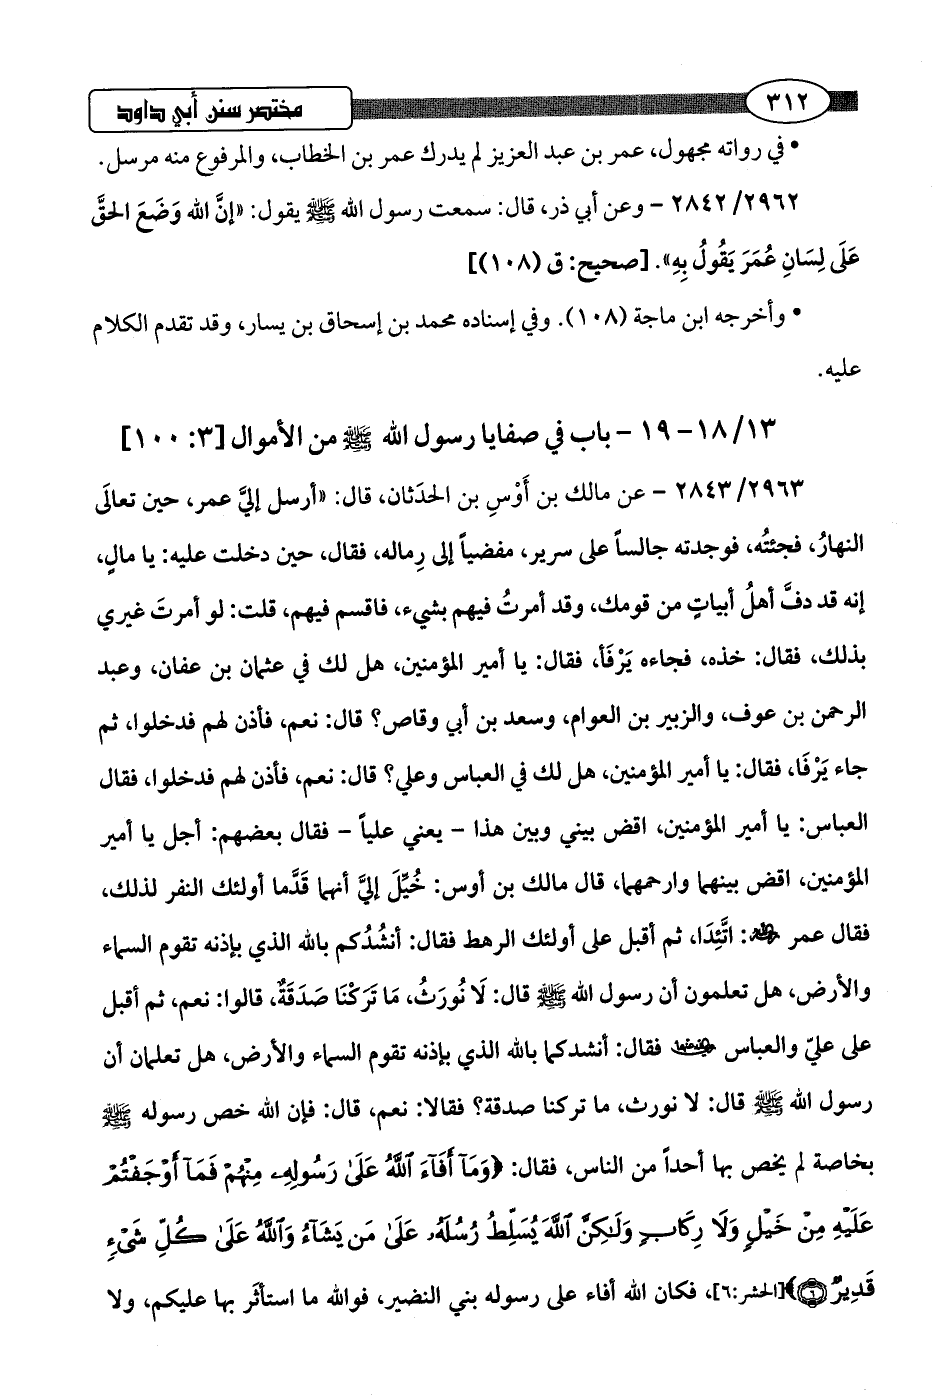 ٣١٢
مختصر سنن أبي داود
• في رواته مجهول، عمر بن عبد العزيز لم يدرك عمر بن الخطاب، والمرفوع منه مرسل.
٢٨٤٢/٢٩٦٢ - وعن أبي ذر، قال: سمعت رسول الله ﷺ يقول: «إنَّ الله وَضَعَ الحقَّ
عَلَى لِسَانِ عُمَرَ يَقُولُ بِهِ». [صحيح: ق (١٠٨)]
• وأخرجه ابن ماجة (١٠٨). وفي إسناده محمد بن إسحاق بن يسار، وقد تقدم الكلام
عليه.
١٨/١٣- ١٩ - باب في صفايا رسول الله ﷺ من الأموال [٣: ١٠٠]
٢٨٤٣/٢٩٦٣ - عن مالك بن أَوْسِ بن الحدَثان، قال: «أرسل إليَّ عمر، حين تعالَى
النهارُ، فجئتُه، فوجدته جالساً على سرير، مفضياً إلى رِماله، فقال، حين دخلت عليه: يا مالِ،
إنه قد دفَّ أهلُ أبياتٍ من قومك، وقد أمرتُ فيهم بشيء، فاقسم فيهم، قلت: لو أمرتَ غيري
بذلك، فقال: خذه، فجاءه يَرْفَأ، فقال: يا أمير المؤمنين، هل لك في عثمان بن عفان، وعبد
الرحمن بن عوف، والزبير بن العوام، وسعد بن أبي وقاص؟ قال: نعم، فأذن لهم فدخلوا، ثم
جاء يَرْفَا، فقال: يا أمير المؤمنين، هل لك في العباس وعلي؟ قال: نعم، فأذن لهم فدخلوا، فقال
العباس: يا أمير المؤمنين، اقض بيني وبين هذا - يعني علياً - فقال بعضهم: أجل يا أمير
المؤمنين، اقض بينهما وارحمهما، قال مالك بن أوس: خُيِّلَ إليَّ أنهما قَدَّما أولئك النفر لذلك،
فقال عمر رضي الله عنه: اتَّئِدَا، ثم أقبل على أولئك الرهط فقال: أنشُدُكم بالله الذي بإذنه تقوم السماء
والأرض، هل تعلمون أن رسول الله ﷺ قال: لَا نُورَثُ، مَا تَرَكْنَا صَدَقَةٌ، قالوا: نعم، ثم أقبل
على عليّ والعباس رضي الله عنهما فقال: أنشدكما بالله الذي بإذنه تقوم السماء والأرض، هل تعلمان أن
رسول الله ﷺ قال: لا نورث، ما تركنا صدقة؟ فقالا: نعم، قال: فإن الله خص رسوله ﷺ
بخاصة لم يخص بها أحداً من الناس، فقال: ﴿وَمَآ أَفَآءَ ٱللَّهُ عَلَىٰ رَسُولِهِۦ مِنْهُمْ فَمَآ أَوْجَفْتُمْ
عَلَيْهِ مِنْ خَيْلٍ وَلَا رِكَابٍ وَلَـٰكِنَّ ٱللَّهَ يُسَلِّطُ رُسُلَهُۥ عَلَىٰ مَن يَشَآءُ وَٱللَّهُ عَلَىٰ كُلِّ شَىْءٍ
قَدِيرٌ ٦﴾ [الحشر:٦]، فكان الله أفاء على رسوله بني النضير، فوالله ما استأثَر بها عليكم، ولا